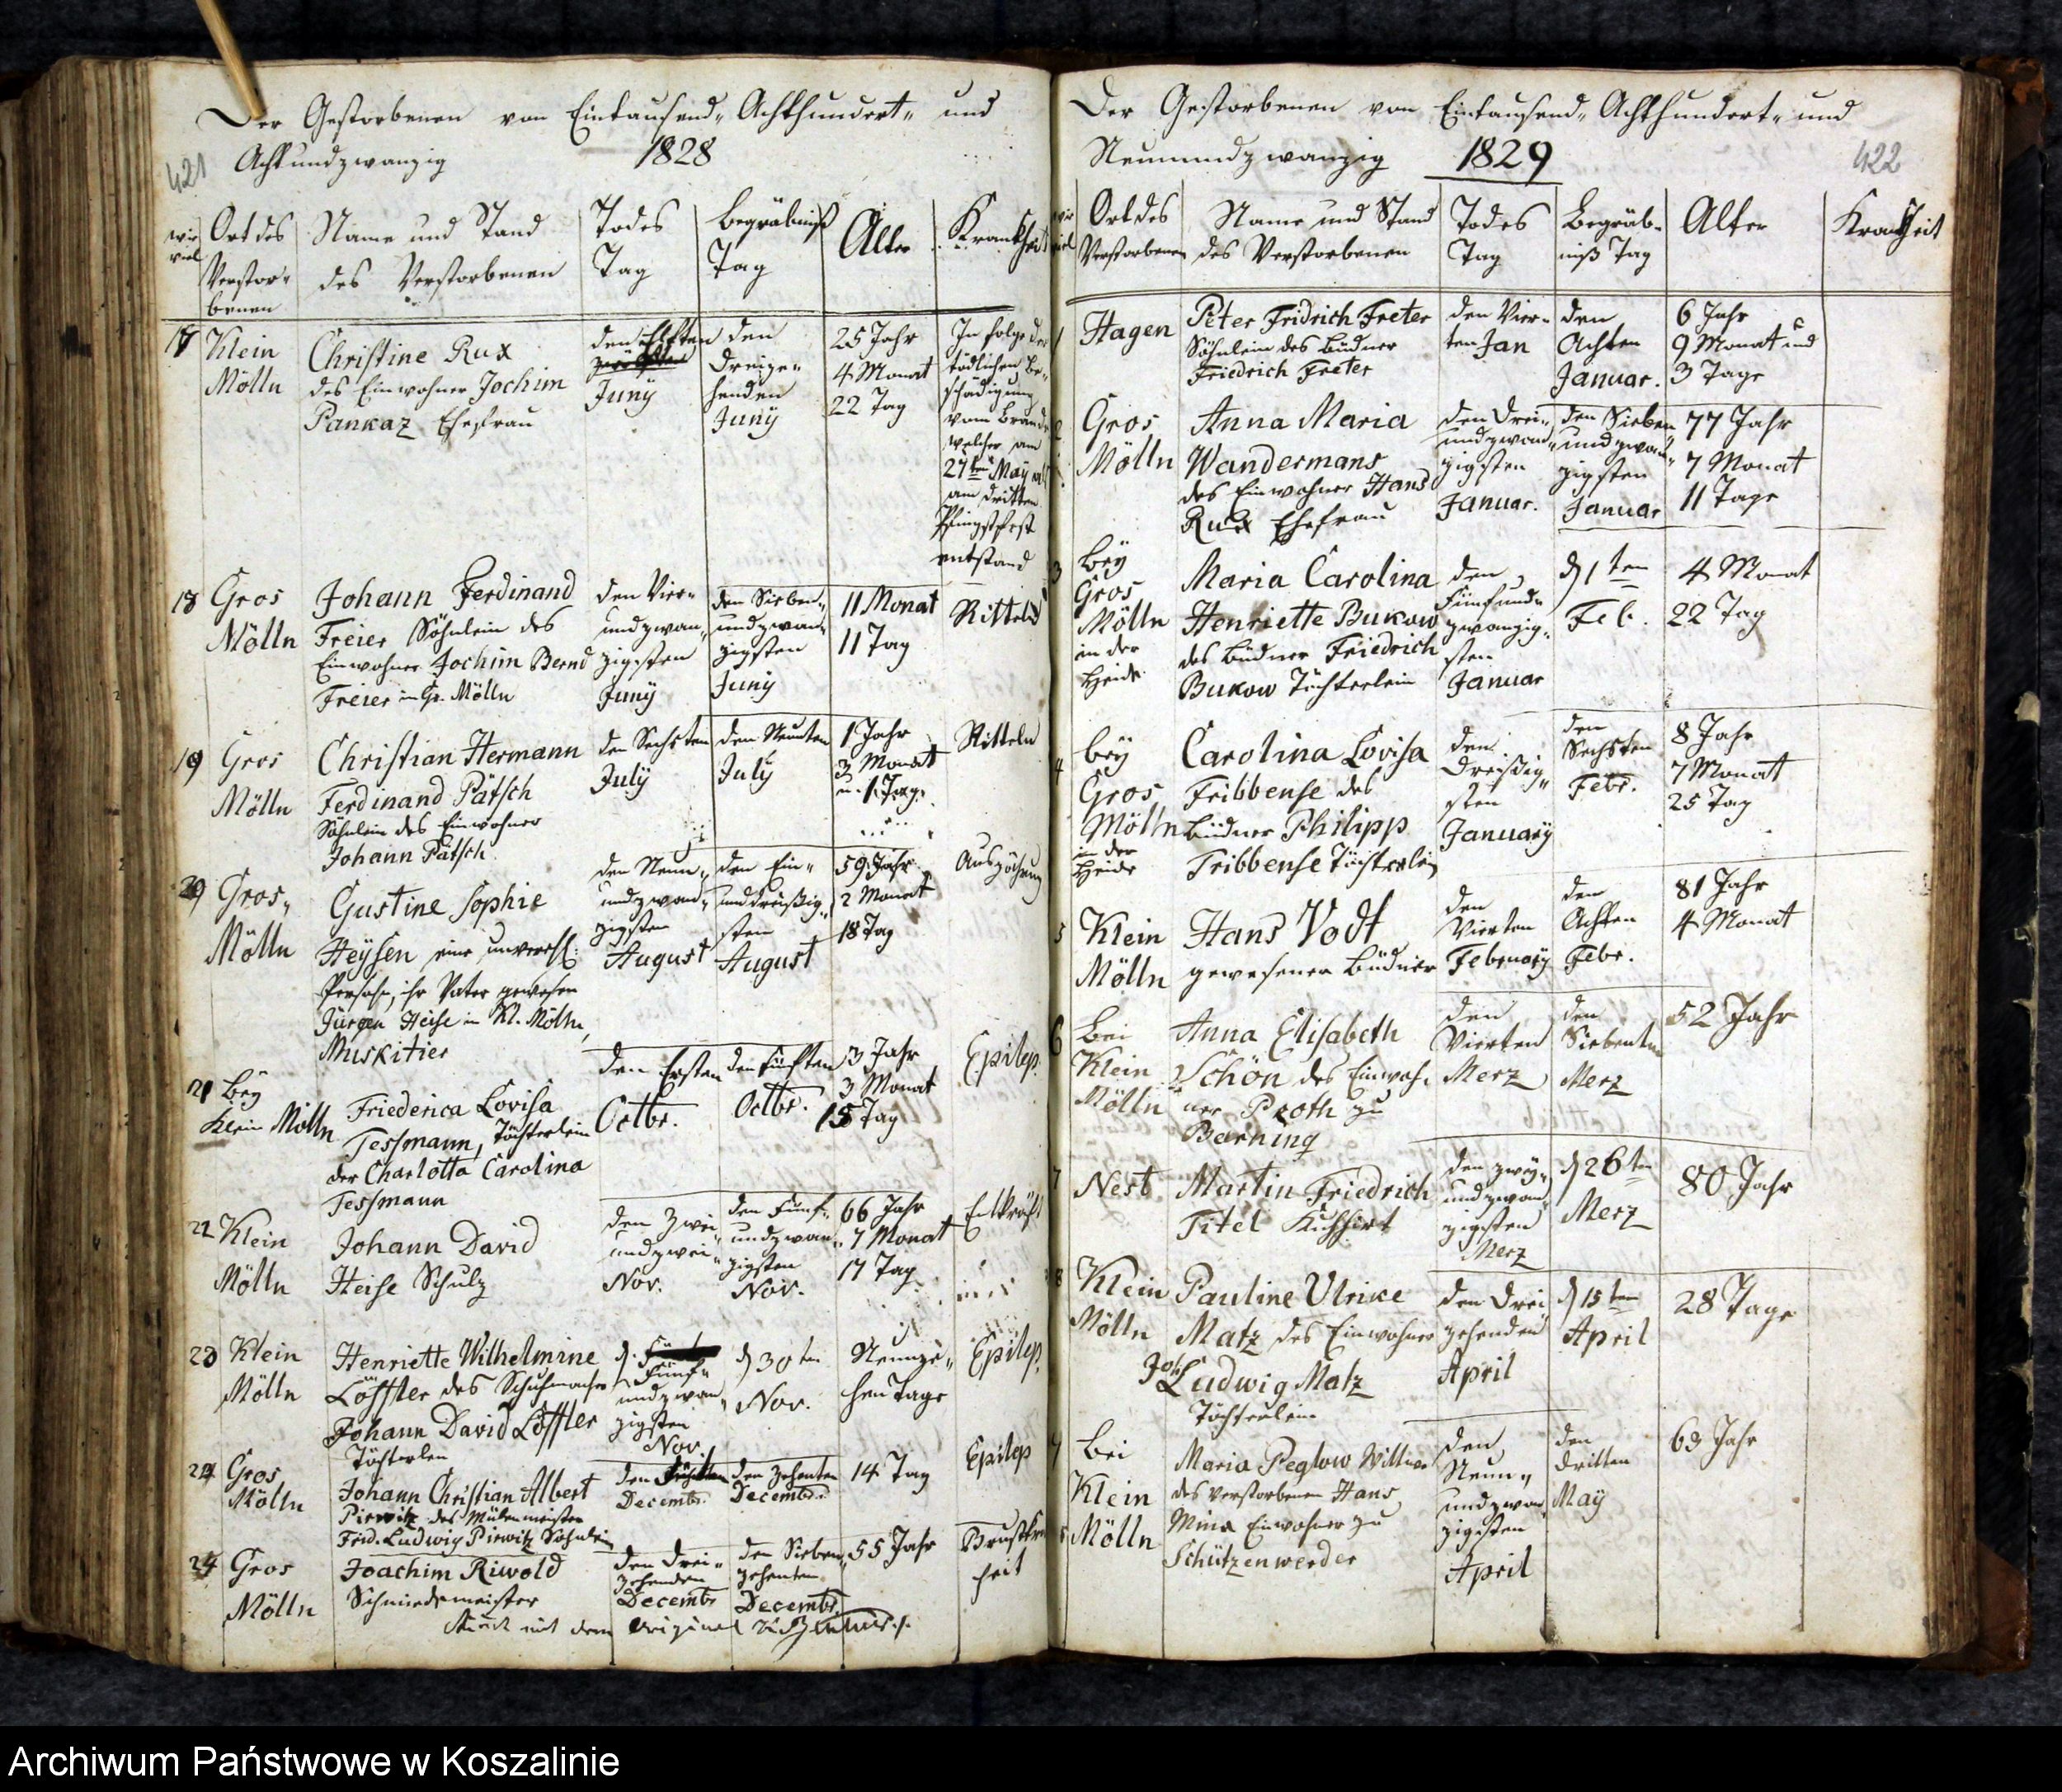 Der Gestorbenen von Eintausend„ Achthundert„ und
Achtundzwanzig 1828
421
wie viel
Ort des Verstor=benen
Name und Stand des Verstorbenen
Todes Tag
Begräbniß Tag
Alter
Krankheit
17
Klein
Mölln
Christine Rux
des Einwohner Jochim
Pankaz Ehefrau
den Elften
Juny
den
Dreize=
henden
Juny
25 Jahr
4 Monat
22 Tag
In folge der
tödlichen Be=
schädigung
vom Brande
welcher am
27ten May
am dritten
Pfingstfest
entstand
18
Gros
Mölln
Johann Ferdinand
Freier Söhnlein des
Einwohner Jochim Bernd
Freier in Gr. Mölln
den Vier=
undzwan„
zigsten
Juny
den Sieben„
undzwan„
zigsten
Juny
11 Monat
11 Tag
Ritteln
19
Gros
Mölln
Christian Hermann
Ferdinand Pätsch
Söhnlein des Einwohner
Johann Pätsch
den Sechsten
July
den Neunten
July
1 Jahr
3 Monat
u. 1 Tag.
Ritteln
20
Gros„
Mölln
Gustine Sophie
Heysen eine unverehl:
Persohn, ihr Vater gewesen
Jürgen Heise in Kl. Mölln,
Muskitier
den Neun„
undzwan„
zigsten
August
den Ein=
unddreißig„
sten
August
59 Jahr
2 Monat
18 Tag
Auszöhrung
21
Bey
Klein Mölln
Friederica Lovisa
Tessmann, Töchterlein
der Charlotta Carolina
Tessmann
den Ersten
Octbr.
den Fünften
Octbr.
3 Jahr
3 Monat
15 Tag
Epilep.
22
Klein
Mölln
Johann David
Heise Schulz
den Zwei
undzwei„
Nov.
den Fünf=
undzwan„
zigsten
Nov.
66 Jahr
7 Monat
17 Tag
Entkräft
23
Klein
Mölln
Henriette Wilhelmine
Löffler des Schuhmacher
Johann David Löffler
Töchterlen
d.
Fünf=
undzwan
zigsten
Nov.
d 30ten
Nov.
Neunze„
hen Tage
Epilep.
24
Gros
Mölln
Johann Christian Albert
Piewitz des Mülenmeister
Frid. Ludwig Piewitz Söhnlein
den
Decembr.
den Zehenten
Decembr.
14 Tag
Epilep
24
Gros
Mölln
Joachim Riwold
Schmiedemeister
den Drei=
zehenden
Decembr
den Sieben„
zehenten
Decembr.
55 Jahr
Brustkrank
heit
mit dem Original
Der Gestorbenen von Eintausend„ Achthundert„ und
Neunundzwanzig 1829
422
wie viel
Ort des Verstorbenen
Name und Stand des Verstorbenen
Todes Tag
Begräb=niß Tag
Alter
Krankheit
1
Hagen
Peter Fridrich Freter
Söhnlein des Büdner
Friedrich Freter
den Vier=
ten Jan
den
Achten
Januar.
6 Jahr
9 Monat und
3 Tage
2
Gros
Mölln
Anna Maria
Wandermans
des Einwohner Hans
Rux Ehefrau
den Drei=
undzwan„
zigsten
Januar.
den Sieben
undzwan„
zigsten
Januar
77 Jahr
7 Monat
11 Tage
3
bey
Gros
Mölln
in der
Heide
Maria Carolina
Henriette Bukow
des Büdner Friedrich
Bukow Töchterlein
den
Fünfund=
zwanzig„
sten
Januar
d 1ten
Feb.
4 Monat
22 Tag
4
bey
Gros
Mölln
in der
Heide
Carolina Lovisa
Fribbense des
Büdner Philipp
Fribbense Töchterlein
den
Dreißig„
sten
January
den
Sechsten
Febr.
8 Jahr
7 Monat
25 Tag
5
Klein
Mölln
Hans Vodt
gewesener Büdner
den
Vierten
February
den
Achten
Febr.
81 Jahr
4 Monat
6
bei
Klein
Mölln
Anna Elisabeth
Schön des Einwoh=
ner Proth zu
Barning
den
Vierten
Merz
den
Siebenten
Merz
52 Jahr
7
Nest
Martin Friedrich
Titel Kuhhirt
den zwey„
undzwan
zigsten
Merz
d 26ten
Merz
80 Jahr
8
Klein
Mölln
Pauline Ulrike
Matz des Einwohner
Joh Ludwig Matz
Töchterlein
den Drei
zehenden
April
d 15ten
April
28 Tage
9
bei
Klein
Mölln
Maria Peglow Wittwe
des verstorbenen Hans
Mina Einwohner zu
Schützenwerder
den
Neun„
undzwan
zigsten
April
den
dritten
May
63 Jahr
Archiwum Państwowe w Koszalinie